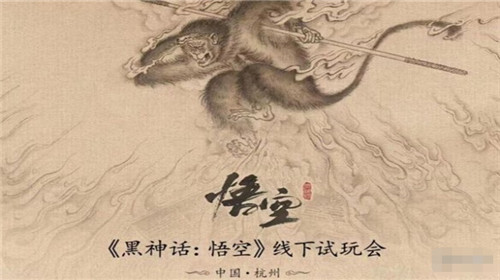 悟空
《黑神话：悟空》线下试玩会
中国·杭州